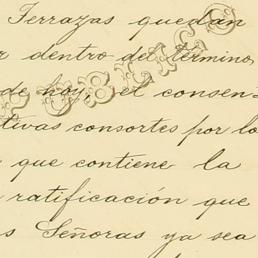 Terrazas quedan
r dentro del término
de hoy el consen-
tivas consortes por lo
que contiene la
ratificación que
s Señoras ya sea